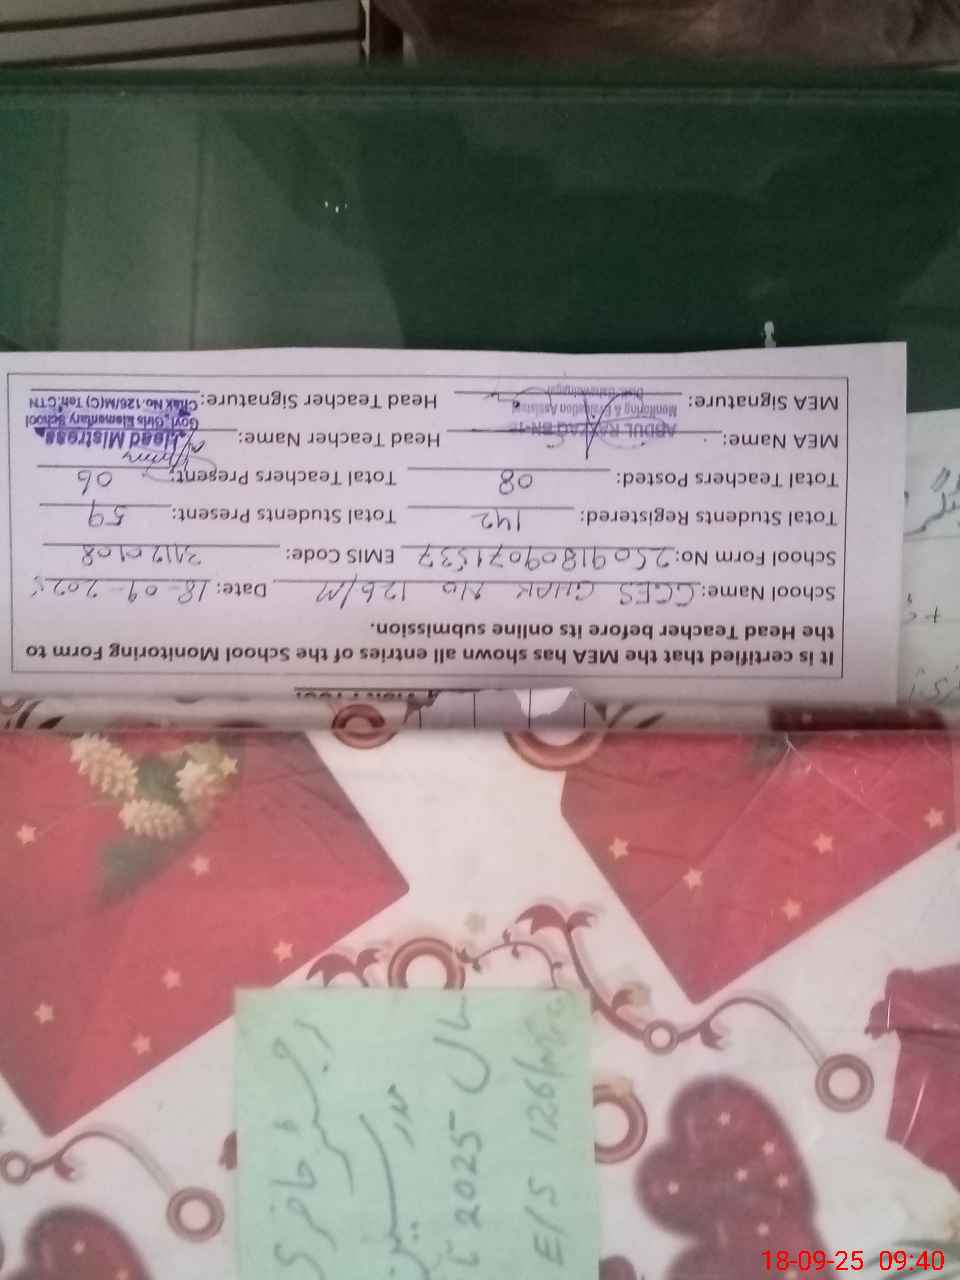 It is certified that the MEA has shown all entries of the School Monitoring Form to
the Head Teacher before its online submission.
School Name: GGES CHAK NO 126/M Date: 18-09-2025
School Form No: 25091809071537 EMIS Code: 31120108
Total Students Registered: 142 Total Students Present: 59
Total Teachers Posted: 08 Total Teachers Present: 06
MEA Name: ABDUL RAZZAQ Head Teacher Name: Head Mistress
Monitoring & Evaluation Assistant Govt. Girls Elementary School
MEA Signature: Head Teacher Signature: Chak No.126/M(C) Teh: CTN
رجسٹر حاضری
مدرسین
سال 2025
E/S 126/M
18-09-25 09:40